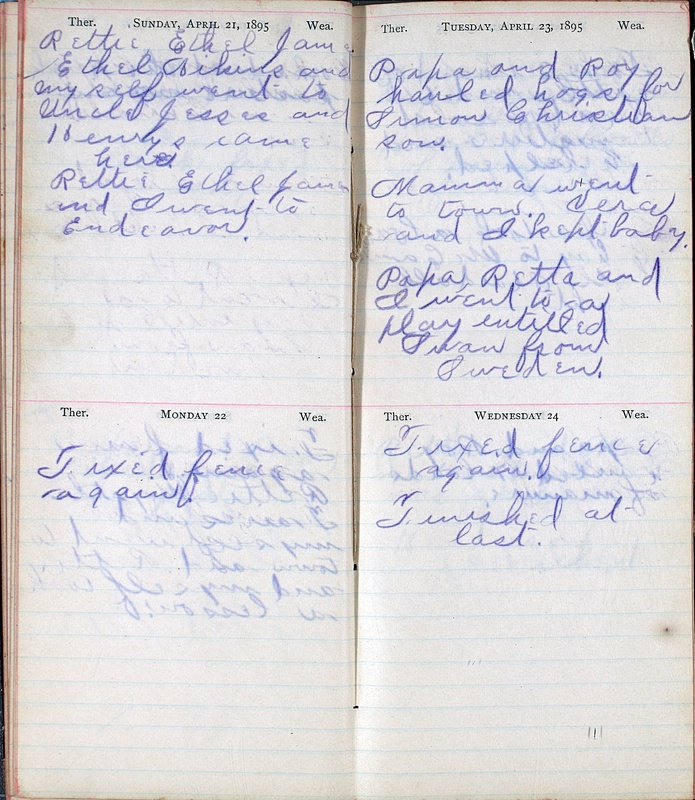 Ther. SUNDAY, APRIL 21, 1895 Wea.
Rettie, Ethel Jane
Ethel and
myself went to
Uncle Jesses and
Henrys came
here.
Rettie Ethel Jane
and I went to
Endeavor.
Ther. MONDAY 22 Wea.
Fixed fence
again.
Ther. TUESDAY, APRIL 23, 1895 Wea.
Papa and Roy
hauled hogs for
Simon Christian
son.
Mamma went
to town. Veree
and I kept baby.
Papa, Retta and
I went to a
play entitled
Swan from
Sweden.
Ther. WEDNESDAY 24 Wea.
Fixed fence
again.
Finished at
last.